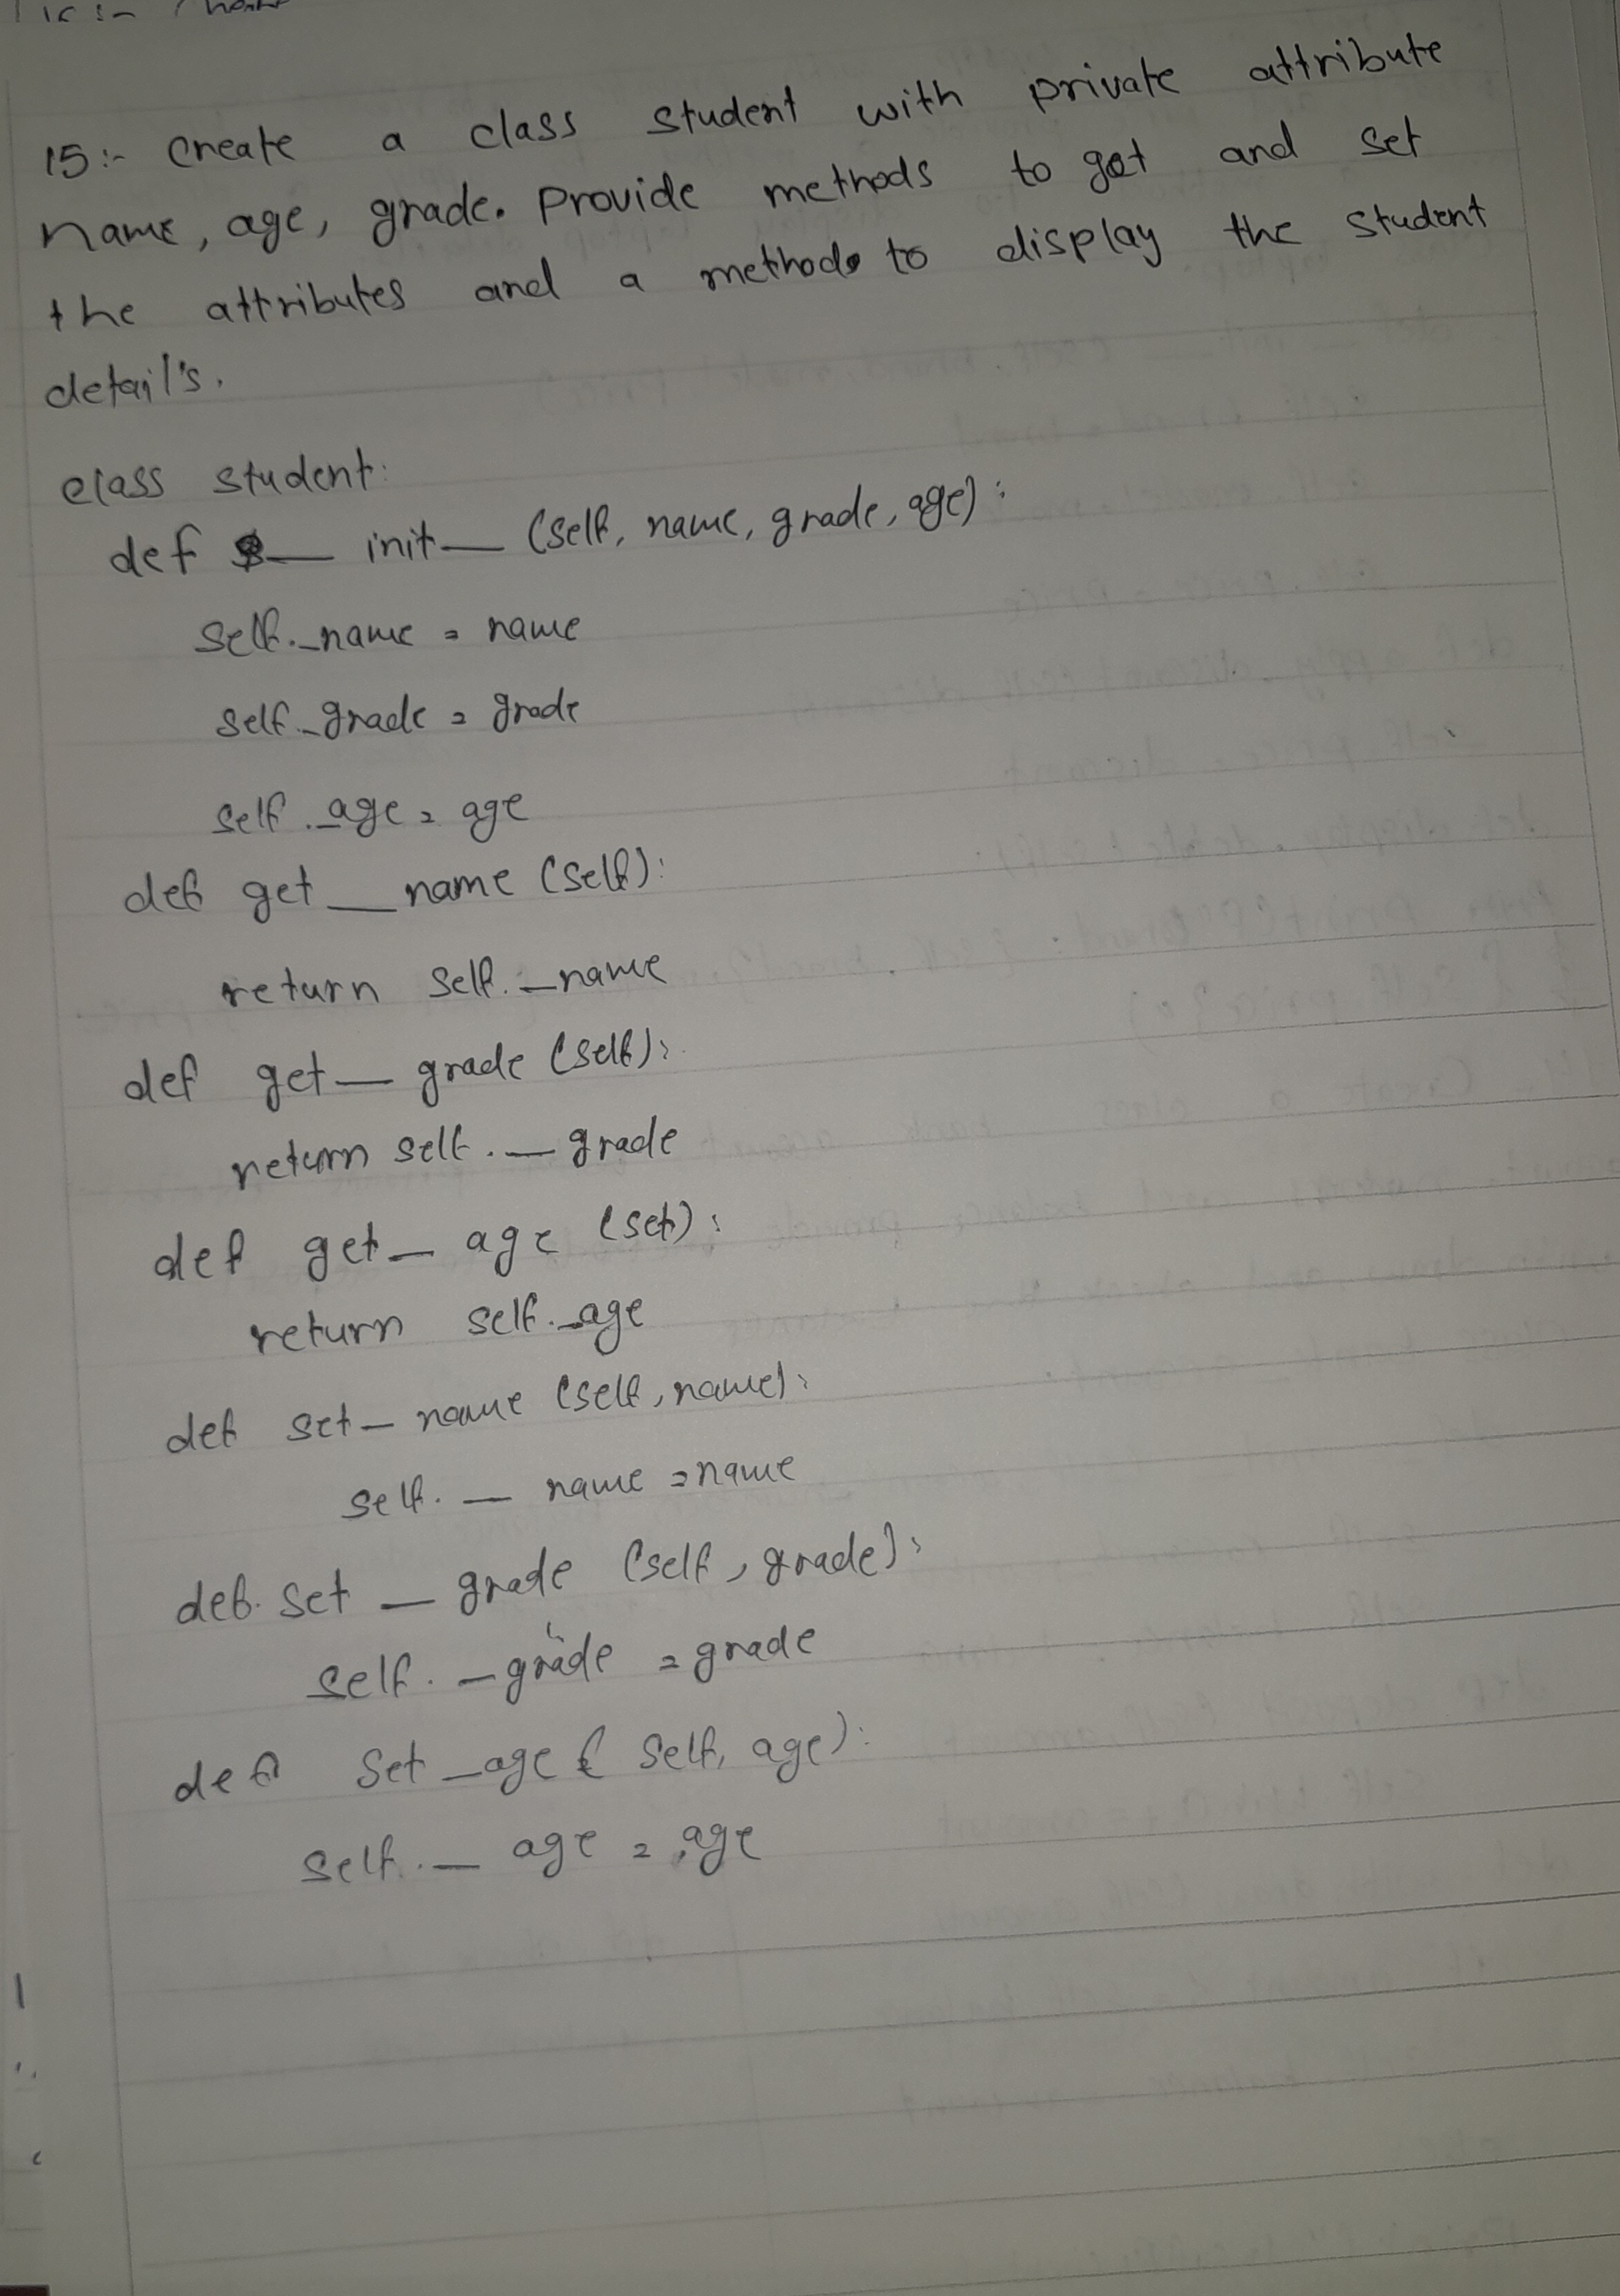 15:- Create a class student with private attribute
name, age, grade. Provide methods to get and set
the attributes and a method to display the student
detail's.
class student:
def __ init __ (self, name, grade, age):
self._name = name
self._grade = grade
self._age = age
def get __ name (self):
return self._name
def get _ grade (self):
return self. _ grade
def get _ age (set):
return self._age
def set _ name (self, name):
self. _ name = name
def. set _ grade (self, grade):
self. _grade = grade
def set _age ( self, age):
self. _ age = age